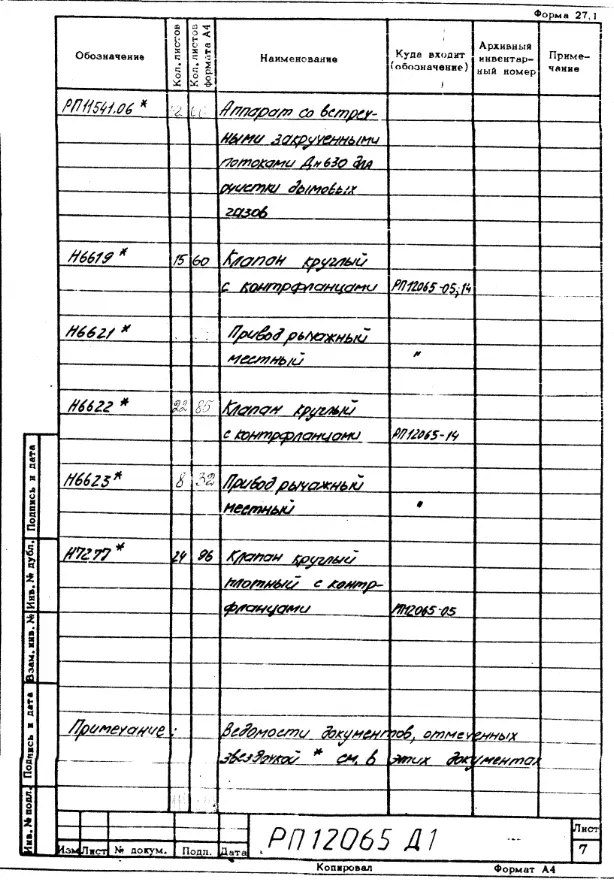 Форма 27,1
Обозначение Кол. листов Кол. листов формата А4 Наименование Куда входит (обозначение) Архивный инвентар-ный номер Приме-чание
РП11541.06 * Аппарат со встреч-
ными закрученными
потоками Дн630 для
очистки дымовых
газов
Н6619 * 15 60 Клапан круглый
с контрфланцами РП12065-05;14
Н6621 * Привод рычажный
местный "
Н6622 * 22 85 Клапан круглый
с контрфланцами РП12065-14
Н6623 * 8 32 Привод рычажный
местный "
Н7277 * 24 96 Клапан круглый
плотный с контр-
фланцами РП12065-05
Примечание: Ведомости документов, отмеченных
звездочкой * см. в этих документах
Инв. № подл. Подпись и дата Взам. инв. № Инв. № дубл. Подпись и дата
РП12065 Д1
Лист
7
Изм Лист № докум. Подп. Дата
Копировал Формат А4